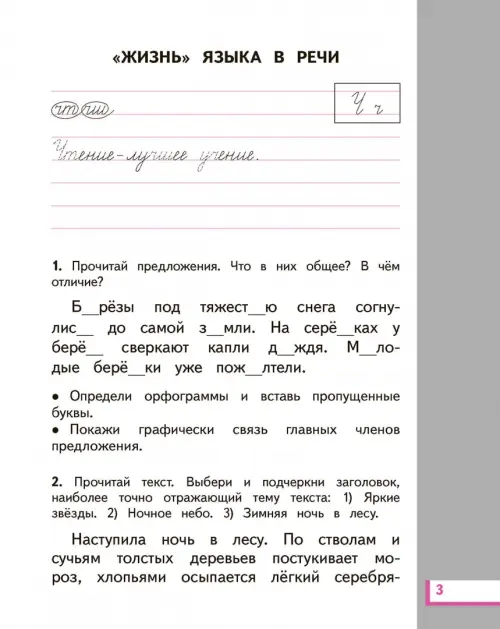 «ЖИЗНЬ» ЯЗЫКА В РЕЧИ
чт чш
Ч ч
Чтение–лучшее учение.
1. Прочитай предложения. Что в них общее? В чём
отличие?
Б__рёзы под тяжест__ю снега согну-
лис__ до самой з__мли. На серё__ках у
берё__ сверкают капли д__ждя. М__ло-
дые берё__ки уже пож__лтели.
● Определи орфограммы и вставь пропущенные
буквы.
● Покажи графически связь главных членов
предложения.
2. Прочитай текст. Выбери и подчеркни заголовок,
наиболее точно отражающий тему текста: 1) Яркие
звёзды. 2) Ночное небо. 3) Зимняя ночь в лесу.
Наступила ночь в лесу. По стволам и
сучьям толстых деревьев постукивает мо-
роз, хлопьями осыпается лёгкий серебря-
3